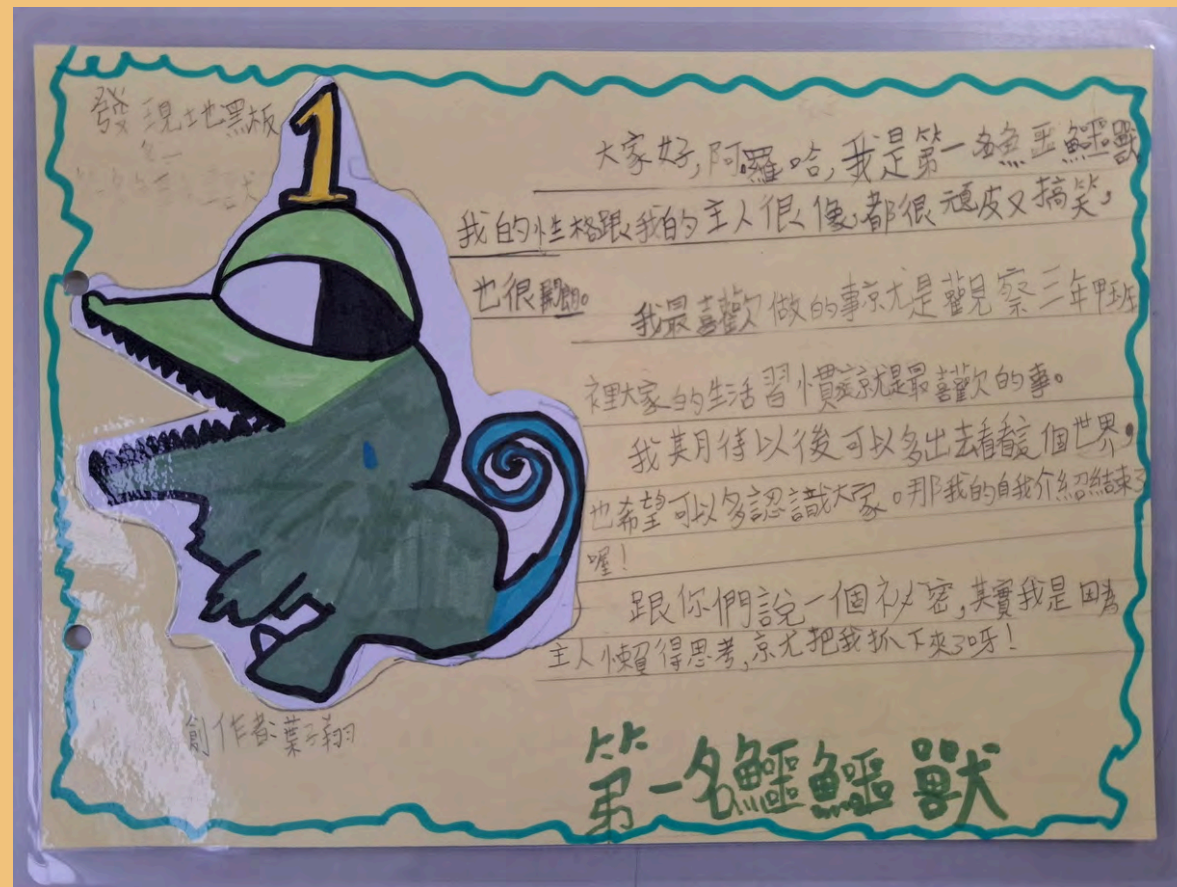 發現地黑板
1
大家好,阿羅哈,我是第一名鱷鱷獸
我的性格跟我的主人很像,都很頑皮又搞笑,
也很開朗。
我最喜歡做的事就是觀察三年甲班
裡大家的生活習慣這就是最喜歡的事。
我期待以後可以多出去看看這個世界,
也希望可以多認識大家。那我的自我介紹結束了
喔!
跟你們說一個祕密,其實我是因為
主人懶得思考,就把我抓下來了呀!
創作者:葉子翔
第一名鱷鱷獸